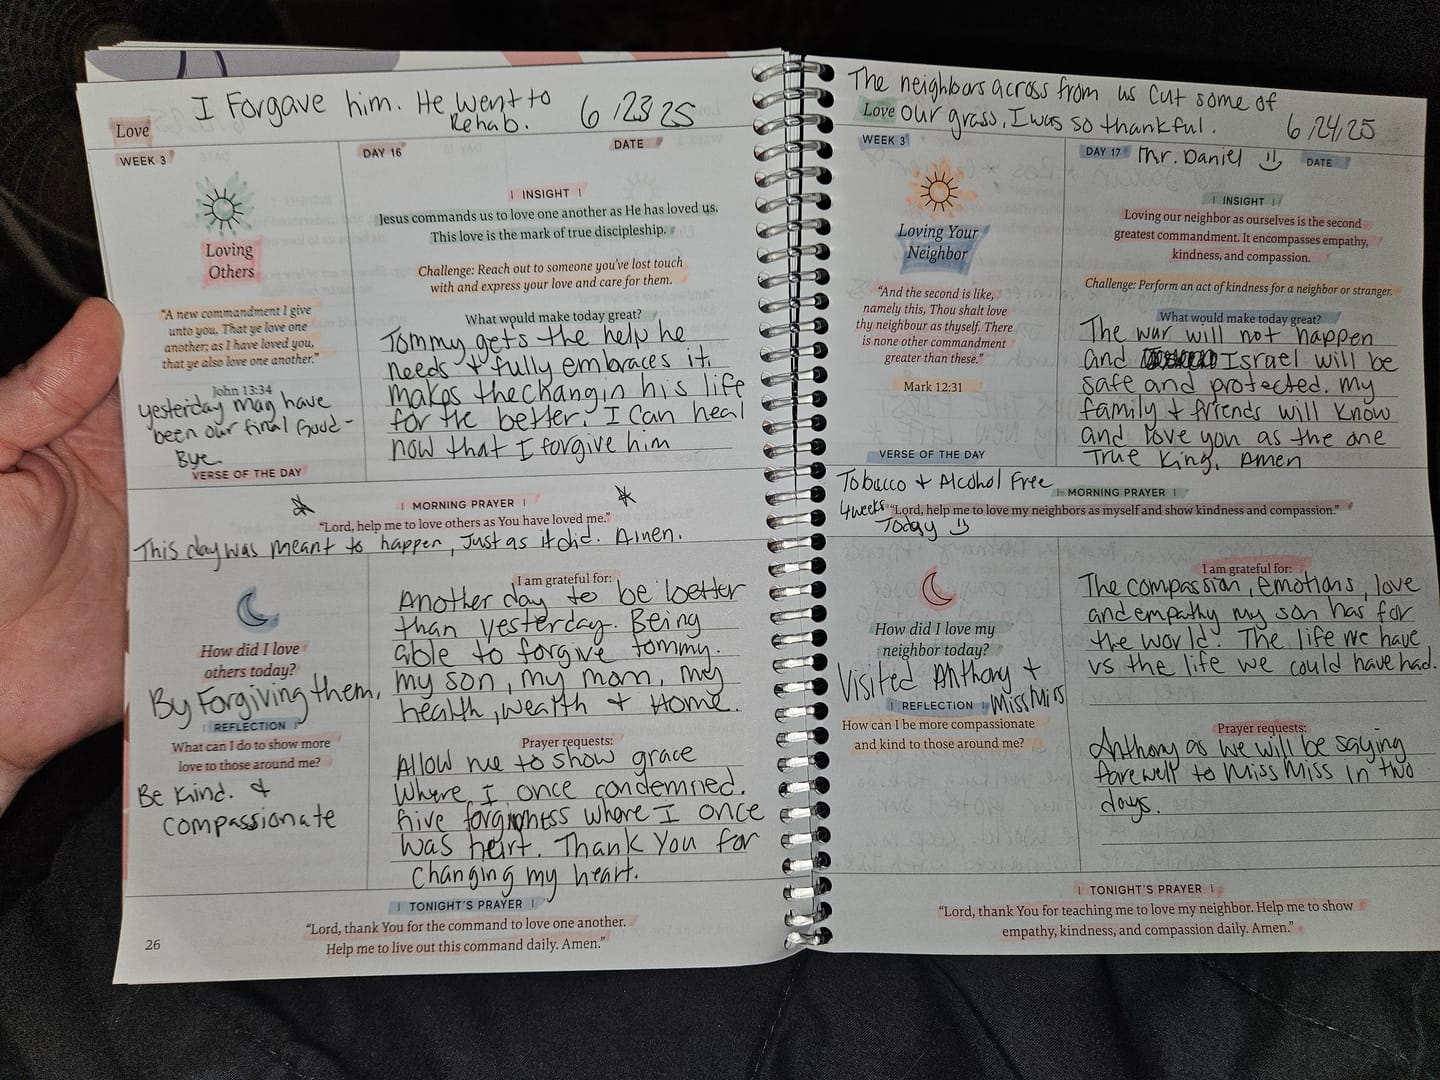 I Forgave him. He went to
Rehab.
6/23/25
Love
WEEK 3
DAY 16
DATE
Loving
Others
| INSIGHT |
Jesus commands us to love one another as He has loved us.
This love is the mark of true discipleship.
Challenge: Reach out to someone you've lost touch
with and express your love and care for them.
"A new commandment I give
unto you, That ye love one
another; as I have loved you,
that ye also love one another."
John 13:34
yesterday may have
been our final Good-
Bye
VERSE OF THE DAY
What would make today great?
Tommy gets the help he
needs + fully embraces it.
makes the changin his life
for the better. I can heal
now that I forgive him
| MORNING PRAYER |
"Lord, help me to love others as You have loved me."
This day was meant to happen, Just as it did. Amen.
How did I love
others today?
By Forgiving them,
| REFLECTION |
What can I do to show more
love to those around me?
Be Kind. +
compassionate
I am grateful for:
Another day to be better
than yesterday. Being
able to forgive Tommy.
my son, my mom, my
health, wealth + Home.
Prayer requests:
Allow me to show grace
where I once condemned.
hive forgivness where I once
was heirt. Thank You for
Changing my heart.
| TONIGHT'S PRAYER |
"Lord, thank You for the command to love one another.
Help me to live out this command daily. Amen."
26
The neighbors across from us cut some of
Love our grass, I was so thankful.
6/24/25
WEEK 3
DAY 17 Mr. Daniel :)
DATE
Loving Your
Neighbor
| INSIGHT |
Loving our neighbor as ourselves is the second
greatest commandment. It encompasses empathy,
kindness, and compassion.
Challenge: Perform an act of kindness for a neighbor or stranger.
"And the second is like,
namely this, Thou shalt love
thy neighbour as thyself. There
is none other commandment
greater than these."
Mark 12:31
VERSE OF THE DAY
What would make today great?
The war will not happen
and Israel will be
safe and protected. my
family + friends will know
and love you as the one
True King, Amen
Tobacco + Alcohol Free
4 weeks
Today :)
| MORNING PRAYER |
"Lord, help me to love my neighbors as myself and show kindness and compassion."
How did I love my
neighbor today?
Visited Anthony +
Miss Miss
| REFLECTION |
How can I be more compassionate
and kind to those around me?
I am grateful for:
The compassion, emotions, love
and empathy my son has for
the world. The life we have
vs the life we could have had.
Prayer requests:
Anthony as we will be saying
farewell to Miss Miss in two
days.
| TONIGHT'S PRAYER |
"Lord, thank You for teaching me to love my neighbor. Help me to show
empathy, kindness, and compassion daily. Amen."